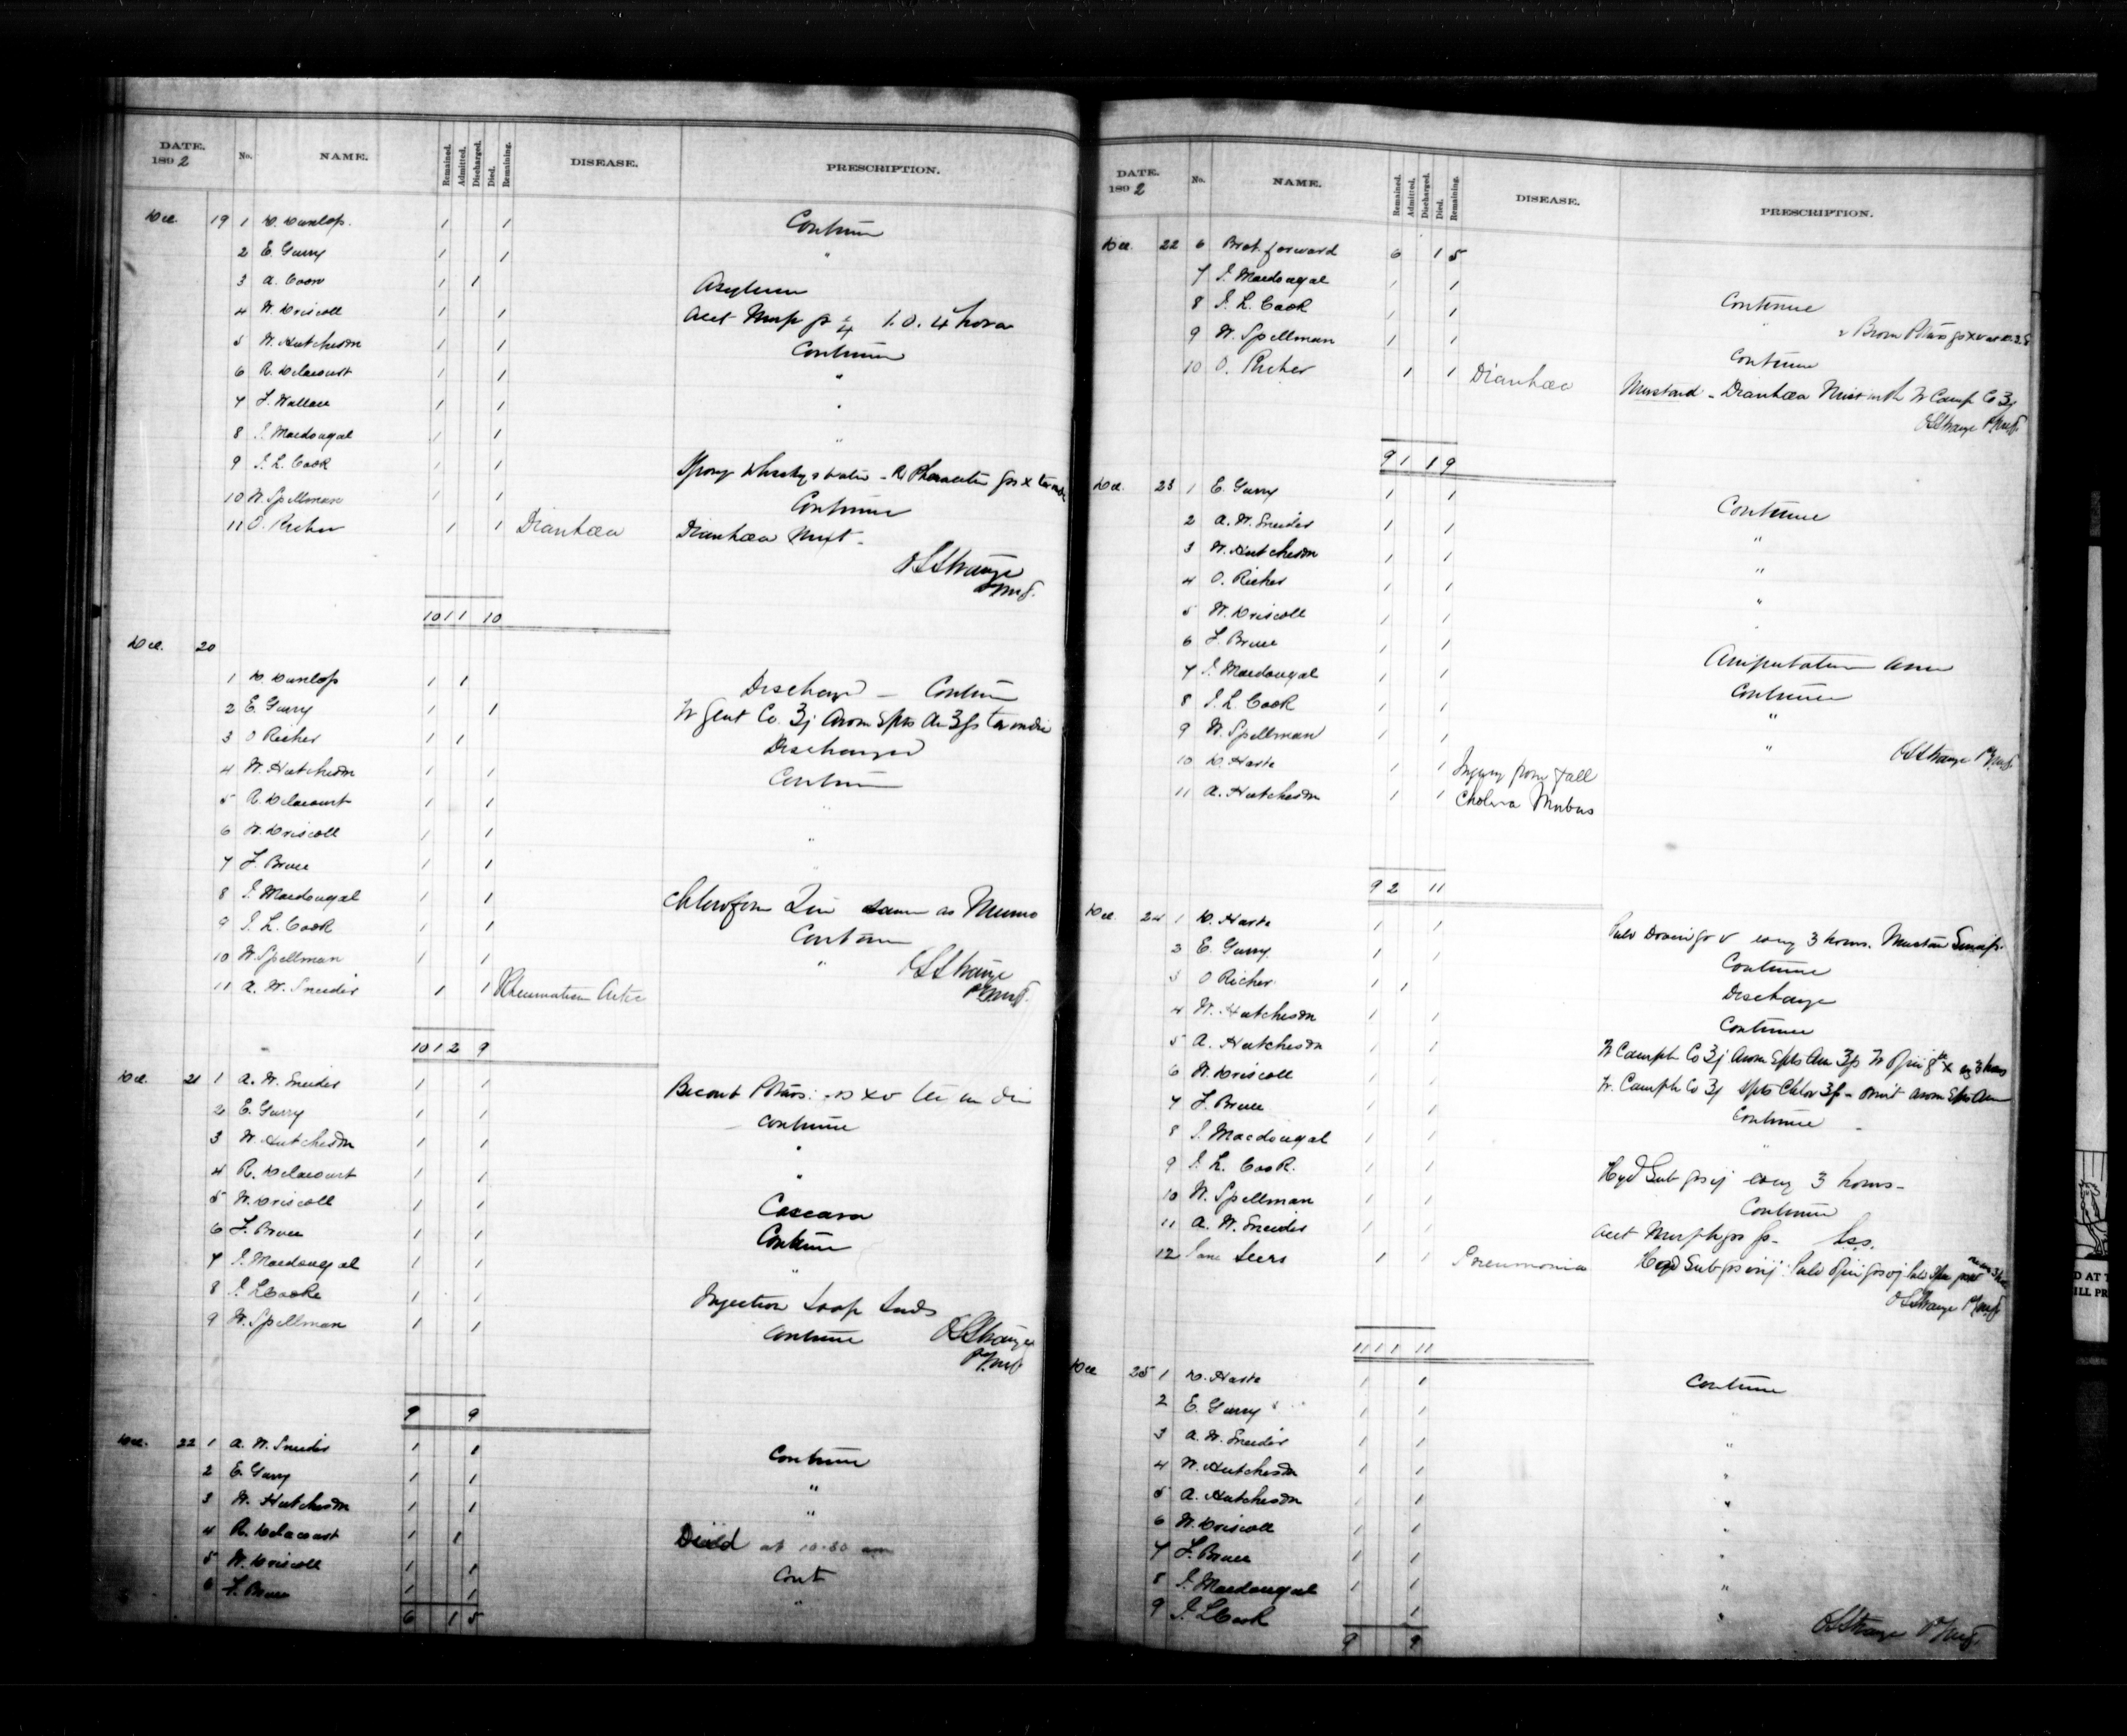 DATE. 1892 No. NAME. Remained. Admitted. Discharged. Died. Remaining. DISEASE. PRESCRIPTION.
Dec. 19 1 D. Dunlop. 1 1 Continue
2 E. Garry 1 1 "
3 A. Coon 1 1 Asylum
4 W. Driscoll 1 1 Acet Morp gr 1/4 4 hora
5 W. Hutcheson 1 1 Continue
6 R. Delacourt 1 1 "
7 F. Wallace 1 1 "
8 J. Macdougal 1 1 "
9 J. L. Cook 1 1 Spong Whisky & water - R Phenacetin grs x
10 W. Spellman 1 1 Continue
11 O. Richer 1 1 Diarrhœa Diarrhœa Mixt.
OSStrange
10 1 1 10
Dec. 20
1 D. Dunlop 1 1 Discharge - Continue
2 E. Garry 1 1 Tr Gent Co. ʒj Arom Spts Am ʒfs ter in die
3 O Richer 1 1 Discharged
4 W. Hutcheson 1 1 Continue
5 R. Delacourt 1 1 "
6 W. Driscoll 1 1 "
7 F. Bruce 1 1 "
8 J. Macdougal 1 1 Chloroform Lin same as Munro
9 J. L. Cook 1 1 Continue
10 W. Spellman 1 1 "
11 A. W. Sneider 1 1 Rheumatism OSStrange
10 1 2 9
Dec. 21 1 A. W. Sneider 1 1 Bicarb Potass xv ter in die
2 E. Garry 1 1 Continue
3 W. Hutcheson 1 1 "
4 R. Delacourt 1 1 "
5 W. Driscoll 1 1 Cascara
6 F. Bruce 1 1 Continue
7 J. Macdougal 1 1 "
8 J. L Cooke 1 1 Injection Soap Suds
9 W. Spellman 1 1 Continue OSStrange
9 9
Dec. 22 1 A. W. Sneider 1 1 Continue
2 E. Garry 1 1 "
3 W. Hutcheson 1 1 "
4 R. Delacourt 1 1 Died at 10.30 am
5 W. Driscoll 1 1 Cont
6 F. Bruce 1 1 "
6 1 5
DATE. 1892 No. NAME. Remained. Admitted. Discharged. Died. Remaining. DISEASE. PRESCRIPTION.
Dec. 22 6 Brot. forward 6 1 5
7 J. Macdougal 1 1 Continue
8 J. L. Cook 1 1 " Brom Potass grs xv
9 W. Spellman 1 1 Continue
10 O. Richer 1 1 Diarrhœa Mustard - Diarrhœa Mixt with Tr Camp Co ʒj
OSStrange
9 1 1 9
Dec. 23 1 E. Garry 1 1 Continue
2 A. W. Sneider 1 1 "
3 W. Hutcheson 1 1 "
4 O. Richer 1 1 "
5 W. Driscoll 1 1
6 F. Bruce 1 1 Amputation Arm
7 J. Macdougal 1 1 Continue
8 J. L Cook 1 1 "
9 W. Spellman 1 1 "
10 D. Haste 1 1 Injury from fall OSStrange
11 A. Hutcheson 1 1 Cholera Morbus
9 2 11
Dec. 24 1 D. Haste 1 1 Pulv Doveri gr v every 3 hours. Mustard Sinap.
2 E. Garry 1 1 Continue
3 O Richer. 1 1 Discharge
4 W. Hutcheson 1 1 Continue
5 A. Hutcheson 1 1 Tr Camph Co ʒj Arom Spts Am ʒfs Tr Opii x
6 W. Driscoll 1 1 Tr. Camph Co ʒj Spts Chlor ʒfs - omit Arom Spts Am
7 F. Bruce 1 1 Continue
8 J. Macdougal 1 1 "
9 J. L. Cook. 1 1 Hyd Sub grs ij every 3 hours -
10 W. Spellman 1 1 Continue
11 A. W. Sneider 1 1 Acet Morph
12 Seers 1 1 Pneumonia Hyd Sub Pulv Opii Pulv
OSStrange
11 1 1 11
Dec 25 1 D. Haste 1 1 Continue
2 E. Garry 1 1 "
3 A. W. Sneider 1 1 "
4 W. Hutcheson 1 1 "
5 A. Hutcheson 1 1 "
6 W. Driscoll 1 1 "
7 F. Bruce 1 1 "
8 J. Macdougal 1 1 "
9 J. L Cook 1 "
OSStrange
9 9